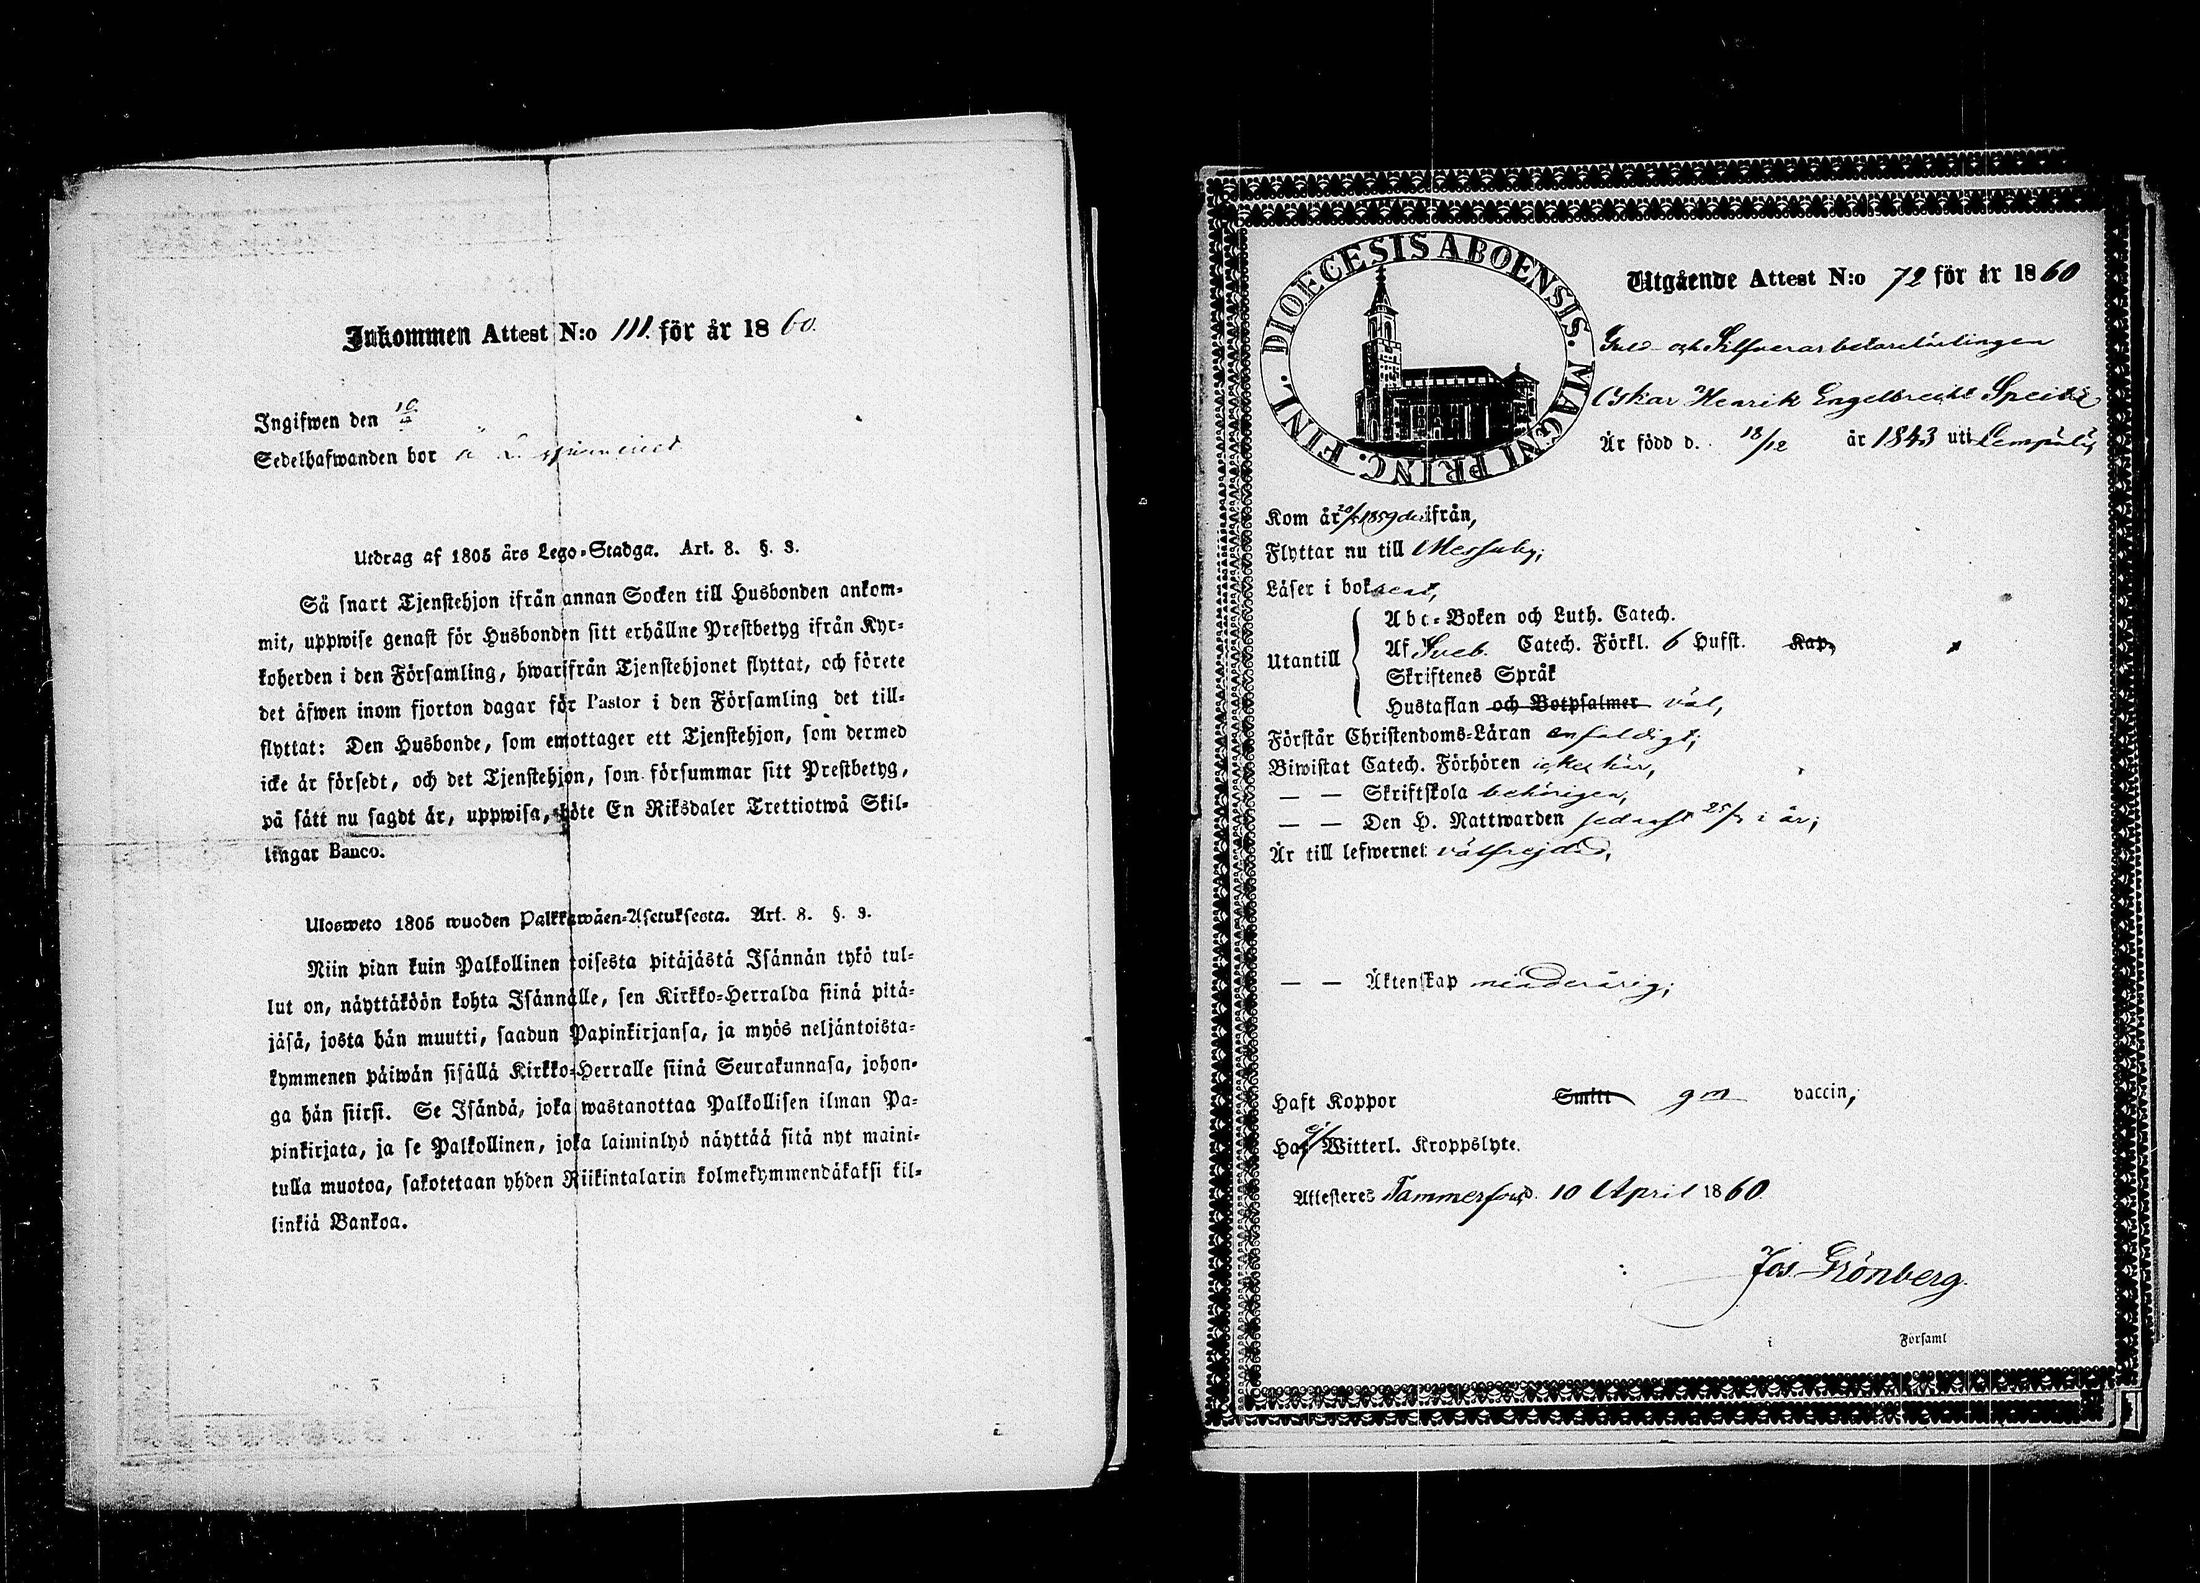 Inkommen Attest N:o 111. för år 1860.
Ingifwen den 10/4
Sedelhafwanden bor
Utdrag af 1805 års Lego-Stadga. Art. 8. §. 3.
Så snart Tjenstehjon ifrån annan Socken till Husbonden ankom-
mit, uppwise genast för Husbonden sitt erhållne Prestbetyg ifrån Kyr-
koherden i den Församling, hwarifrån Tjenstehjonet flyttat, och förete
det äfwen inom fjorton dagar för Pastor i den Församling det till-
flyttat: Den Husbonde, som emottager ett Tjenstehjon, som dermed
icke är försedt, och det Tjenstehjon, som försummar sitt Prestbetyg,
på sätt nu sagdt är, uppwisa, böte En Riksdaler Trettiotwå Skil-
lingar Banco.
Ulosweto 1805 wuoden Palkkawäen-Asetuksesta. Art. 8. §. 3.
Niin pian kuin Palkollinen toisesta pitäjästä Isännän tykö tul-
lut on, näyttäköön kohta Isännälle, sen Kirkko-Herralda siinä pitä-
jäsä, josta hän muutti, saadun Papinkirjansa, ja myös neljäntoista-
kymmenen päiwän sisällä Kirkko-Herralle siinä Seurakunnasa, johon-
ga hän siirsi. Se Isändä, joka wastanottaa Palkollisen ilman Pa-
pinkirjata, ja se Palkollinen, joka laiminlyö näyttää sitä nyt maini-
tulla muotoa, sakotetaan yhden Riikintalarin kolmekymmendäkaksi kil-
linkiä Bankoa.
DIOECESIS ABOENSIS. MAGNI PRINC. FINL.
Utgående Attest N:o 72 för år 1860
Guld- och Silfverarbetarelärlingen
Oskar Henrik Engelbrecht Speitz
Är född d. 18/12 år 1843 uti Lempälä,
Kom år 1859 ifrån,
Flyttar nu till Messuby;
Läser i bok rent,
Utantill
Abc-Boken och Luth. Catech.
Af Sveb. Catech. Förkl. 6 Hufst. Kap.
Skriftenes Språk
Hustaflan och Botpsalmer väl,
Förstår Christendoms-Läran enfaldigt;
Biwistat Catech. Förhören icke här,
— — Skriftskola behörigen,
— — Den H. Nattwarden sednast 25/3 i år;
Är till lefwernet välfrejdad,
— — Äktenskap minderårig;
Haft Koppor Smitt gm vaccin;
Haf ej Witterl. Kroppslyte.
Attesteres Tammerfors d. 10 April 1860
Jos Grönberg.
i Församl